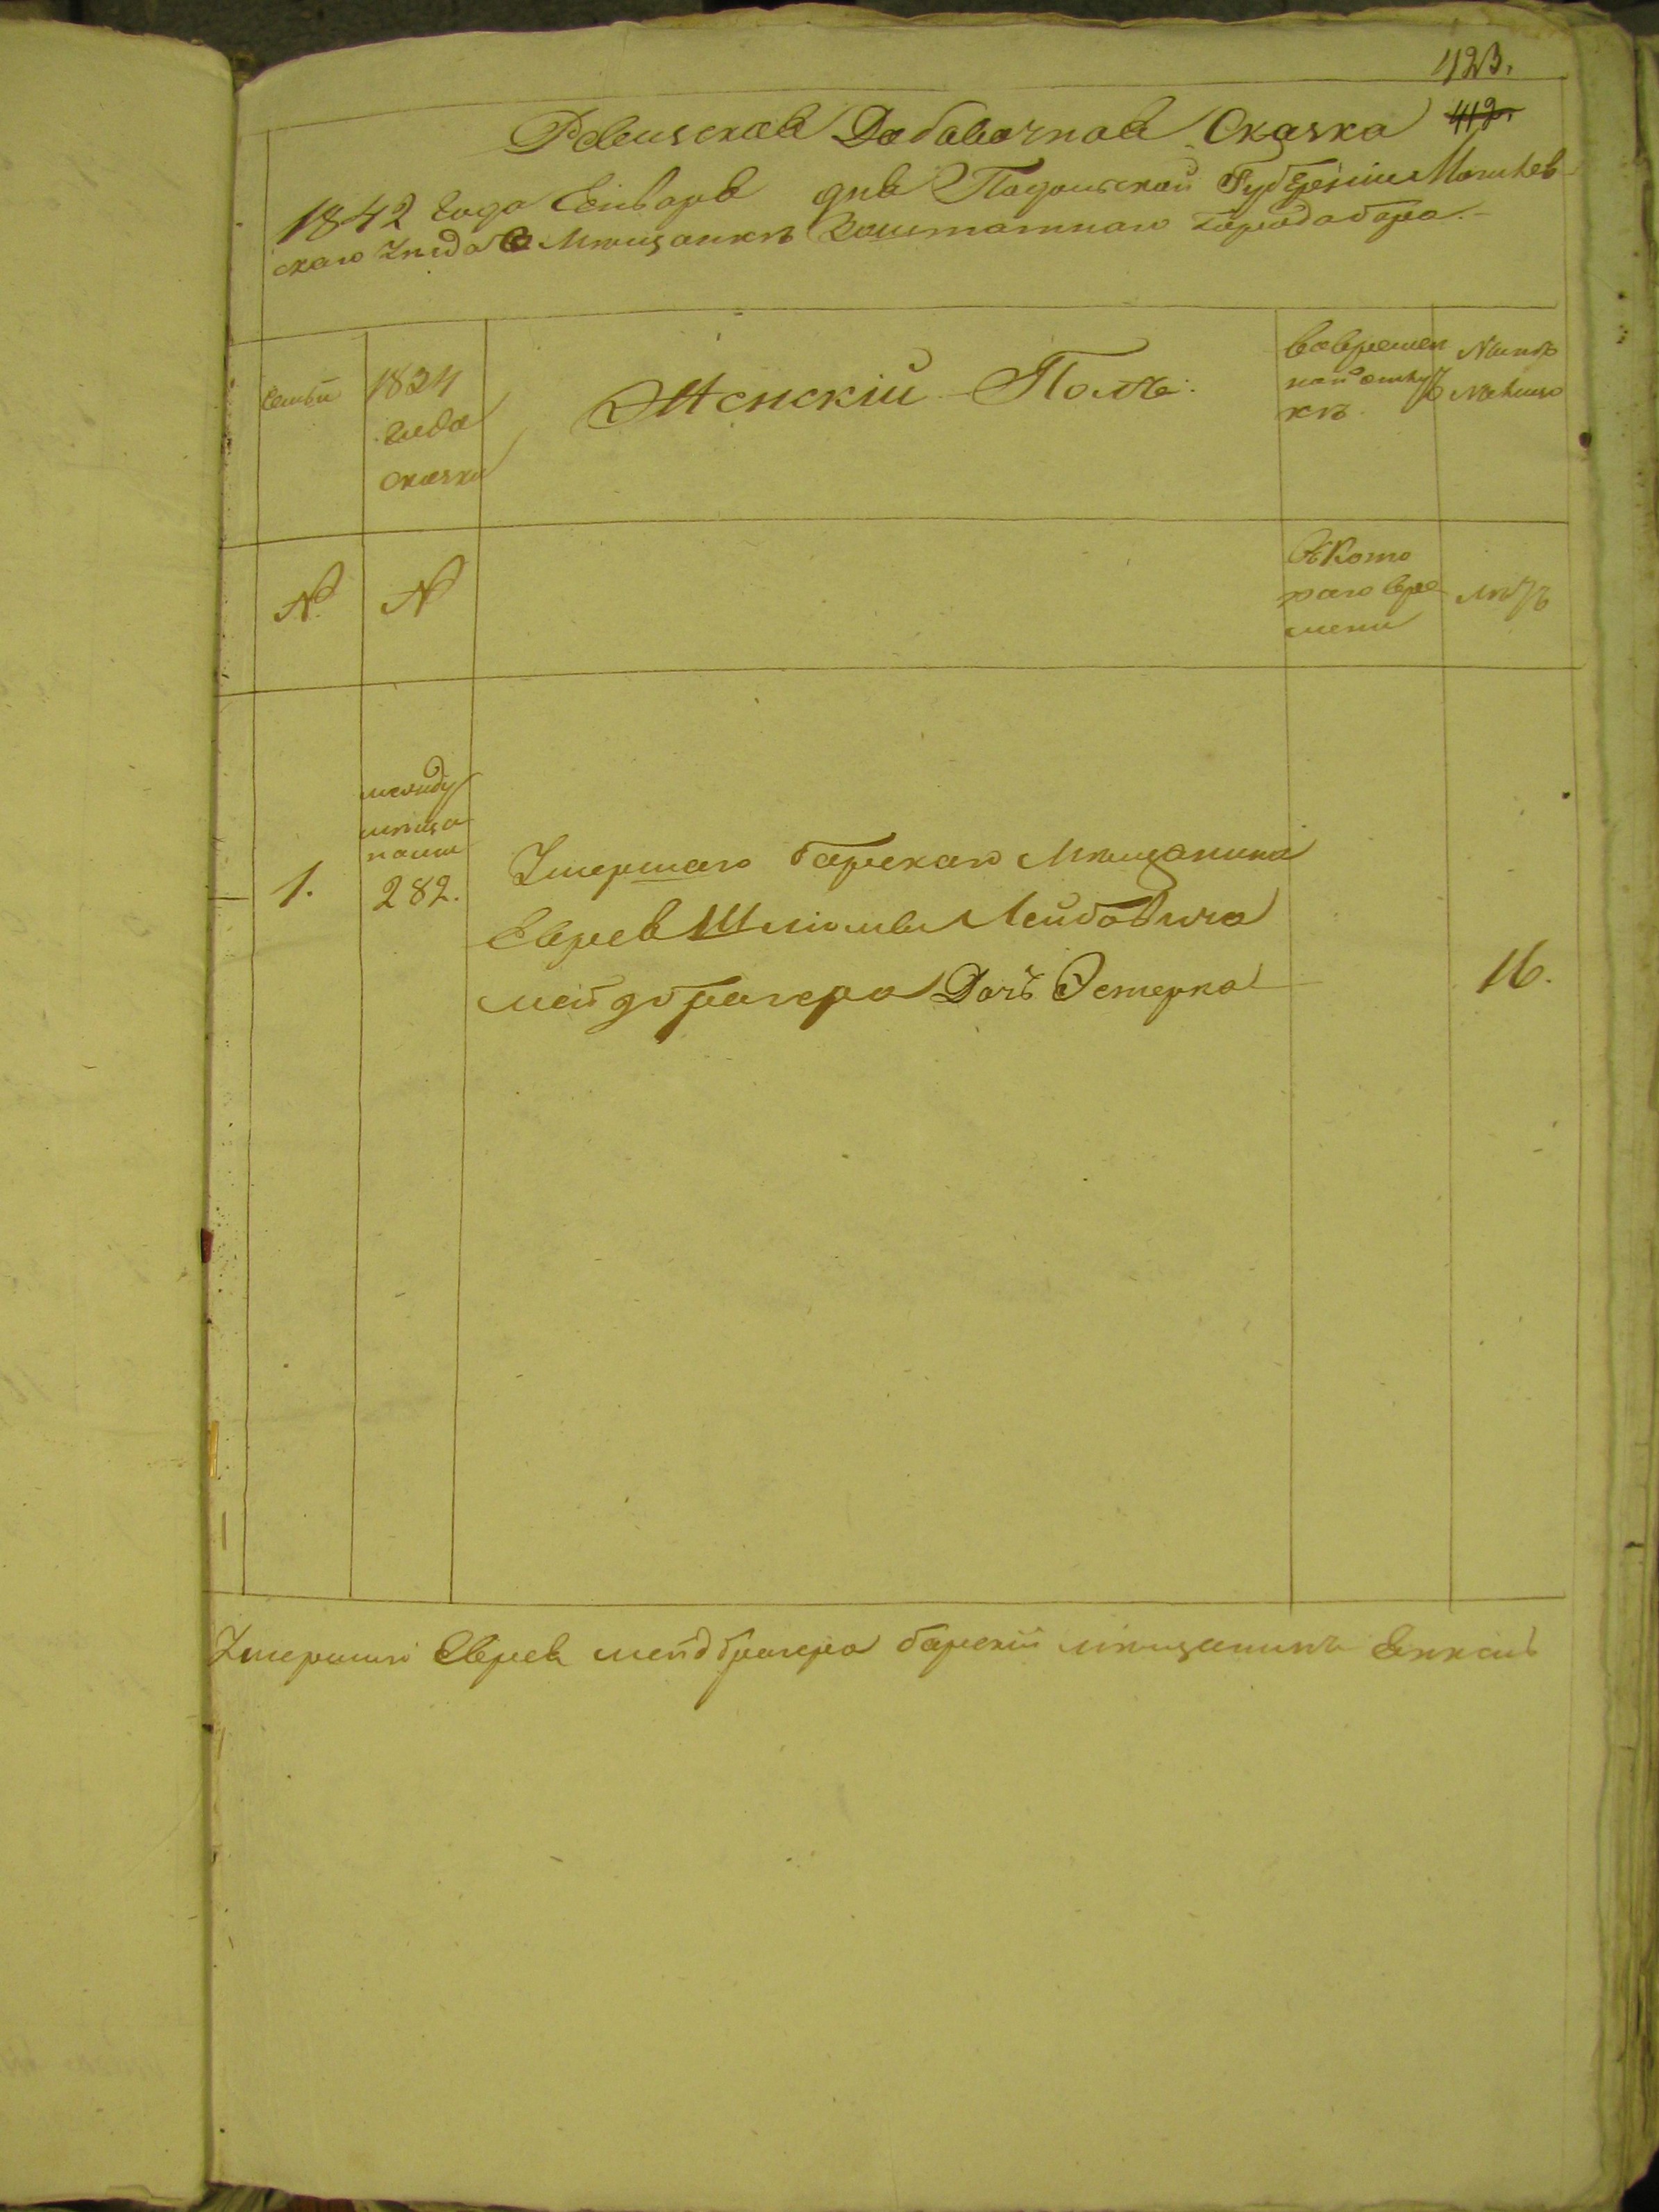 423.
412.
Ревизская Добавочная Сказка
1842 года Генваря дня Подольской Губернии Могилев
скаго Уезда О Мѣщанкѣ Заштатнаго Города бара.-
Семьи
1834
года
сказки
Женскій Полъ.
Вовремен
ной отлуч
кѣ.
Нынѣ
налицо
№
№
Съ Кото
раго вре
мени
лѣтъ
1.
между
мѣща
нами
282.
Умершаго барскаго Мѣщанина
Еврея Шліомы Лейбовича
Мейдбрагера Дочь Эстерка
16.
Умершаго Еврея мейдбрагера барскій мѣщанинъ